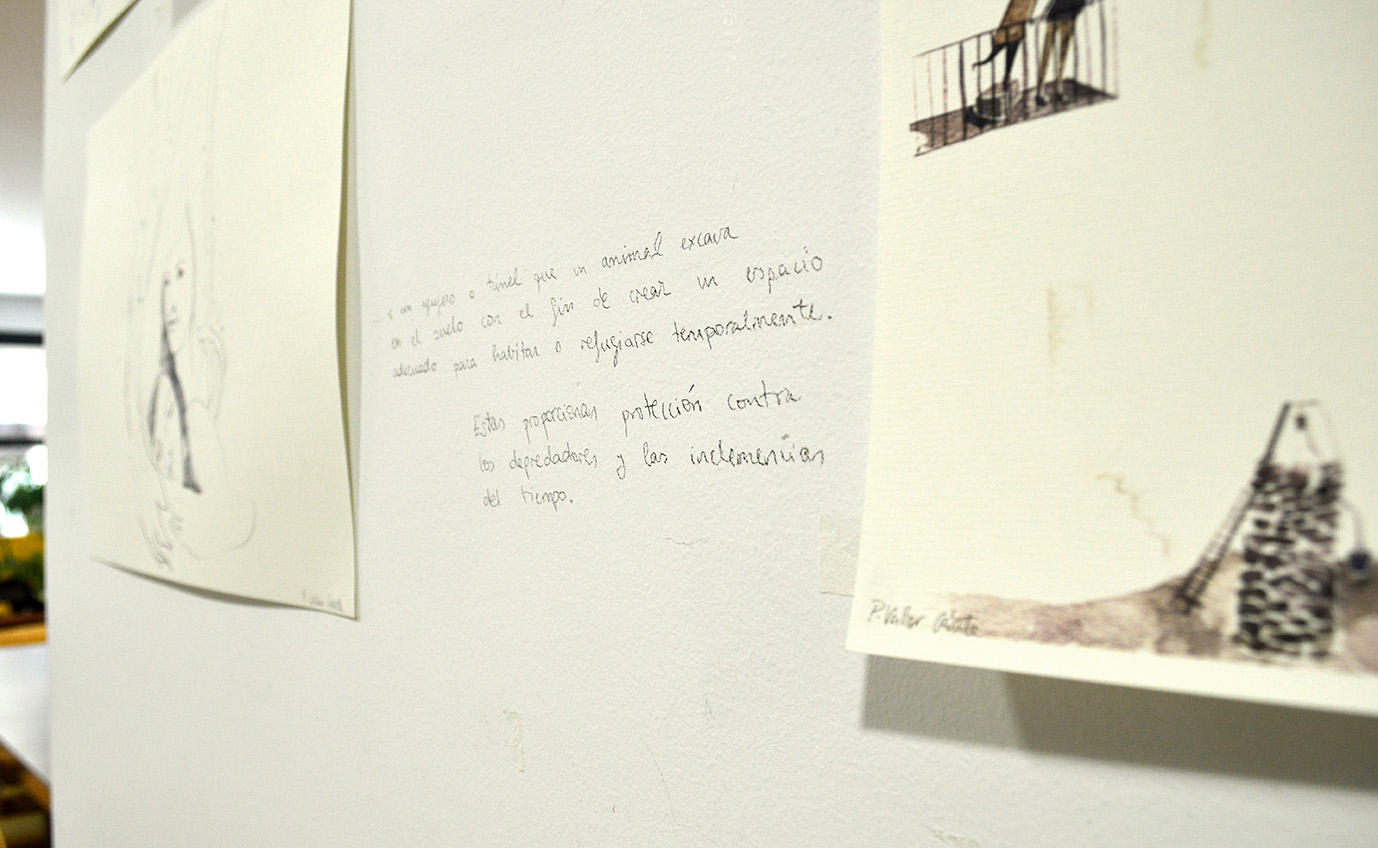 ...s un agujero o túnel que un animal excava
en el suelo con el fin de crear un espacio
adecuado para habitar o refugiarse temporalmente.
Estas proporcionan protección contra
los depredadores y las inclemencias
del tiempo.
P. Valler